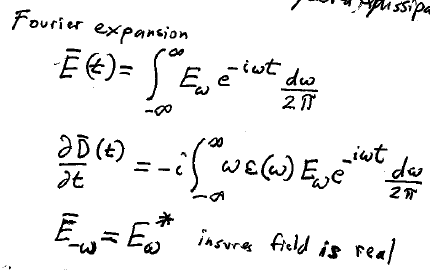 Fourier expansion
Ē(t) = ∫_{-∞}^{∞} E_ω e^{-iωt} dω/2π
∂D̄(t)/∂t = -i ∫_{-∞}^{∞} ω ε(ω) E_ω e^{-iωt} dω/2π
Ē_{-ω} = E_ω^* insures field is real